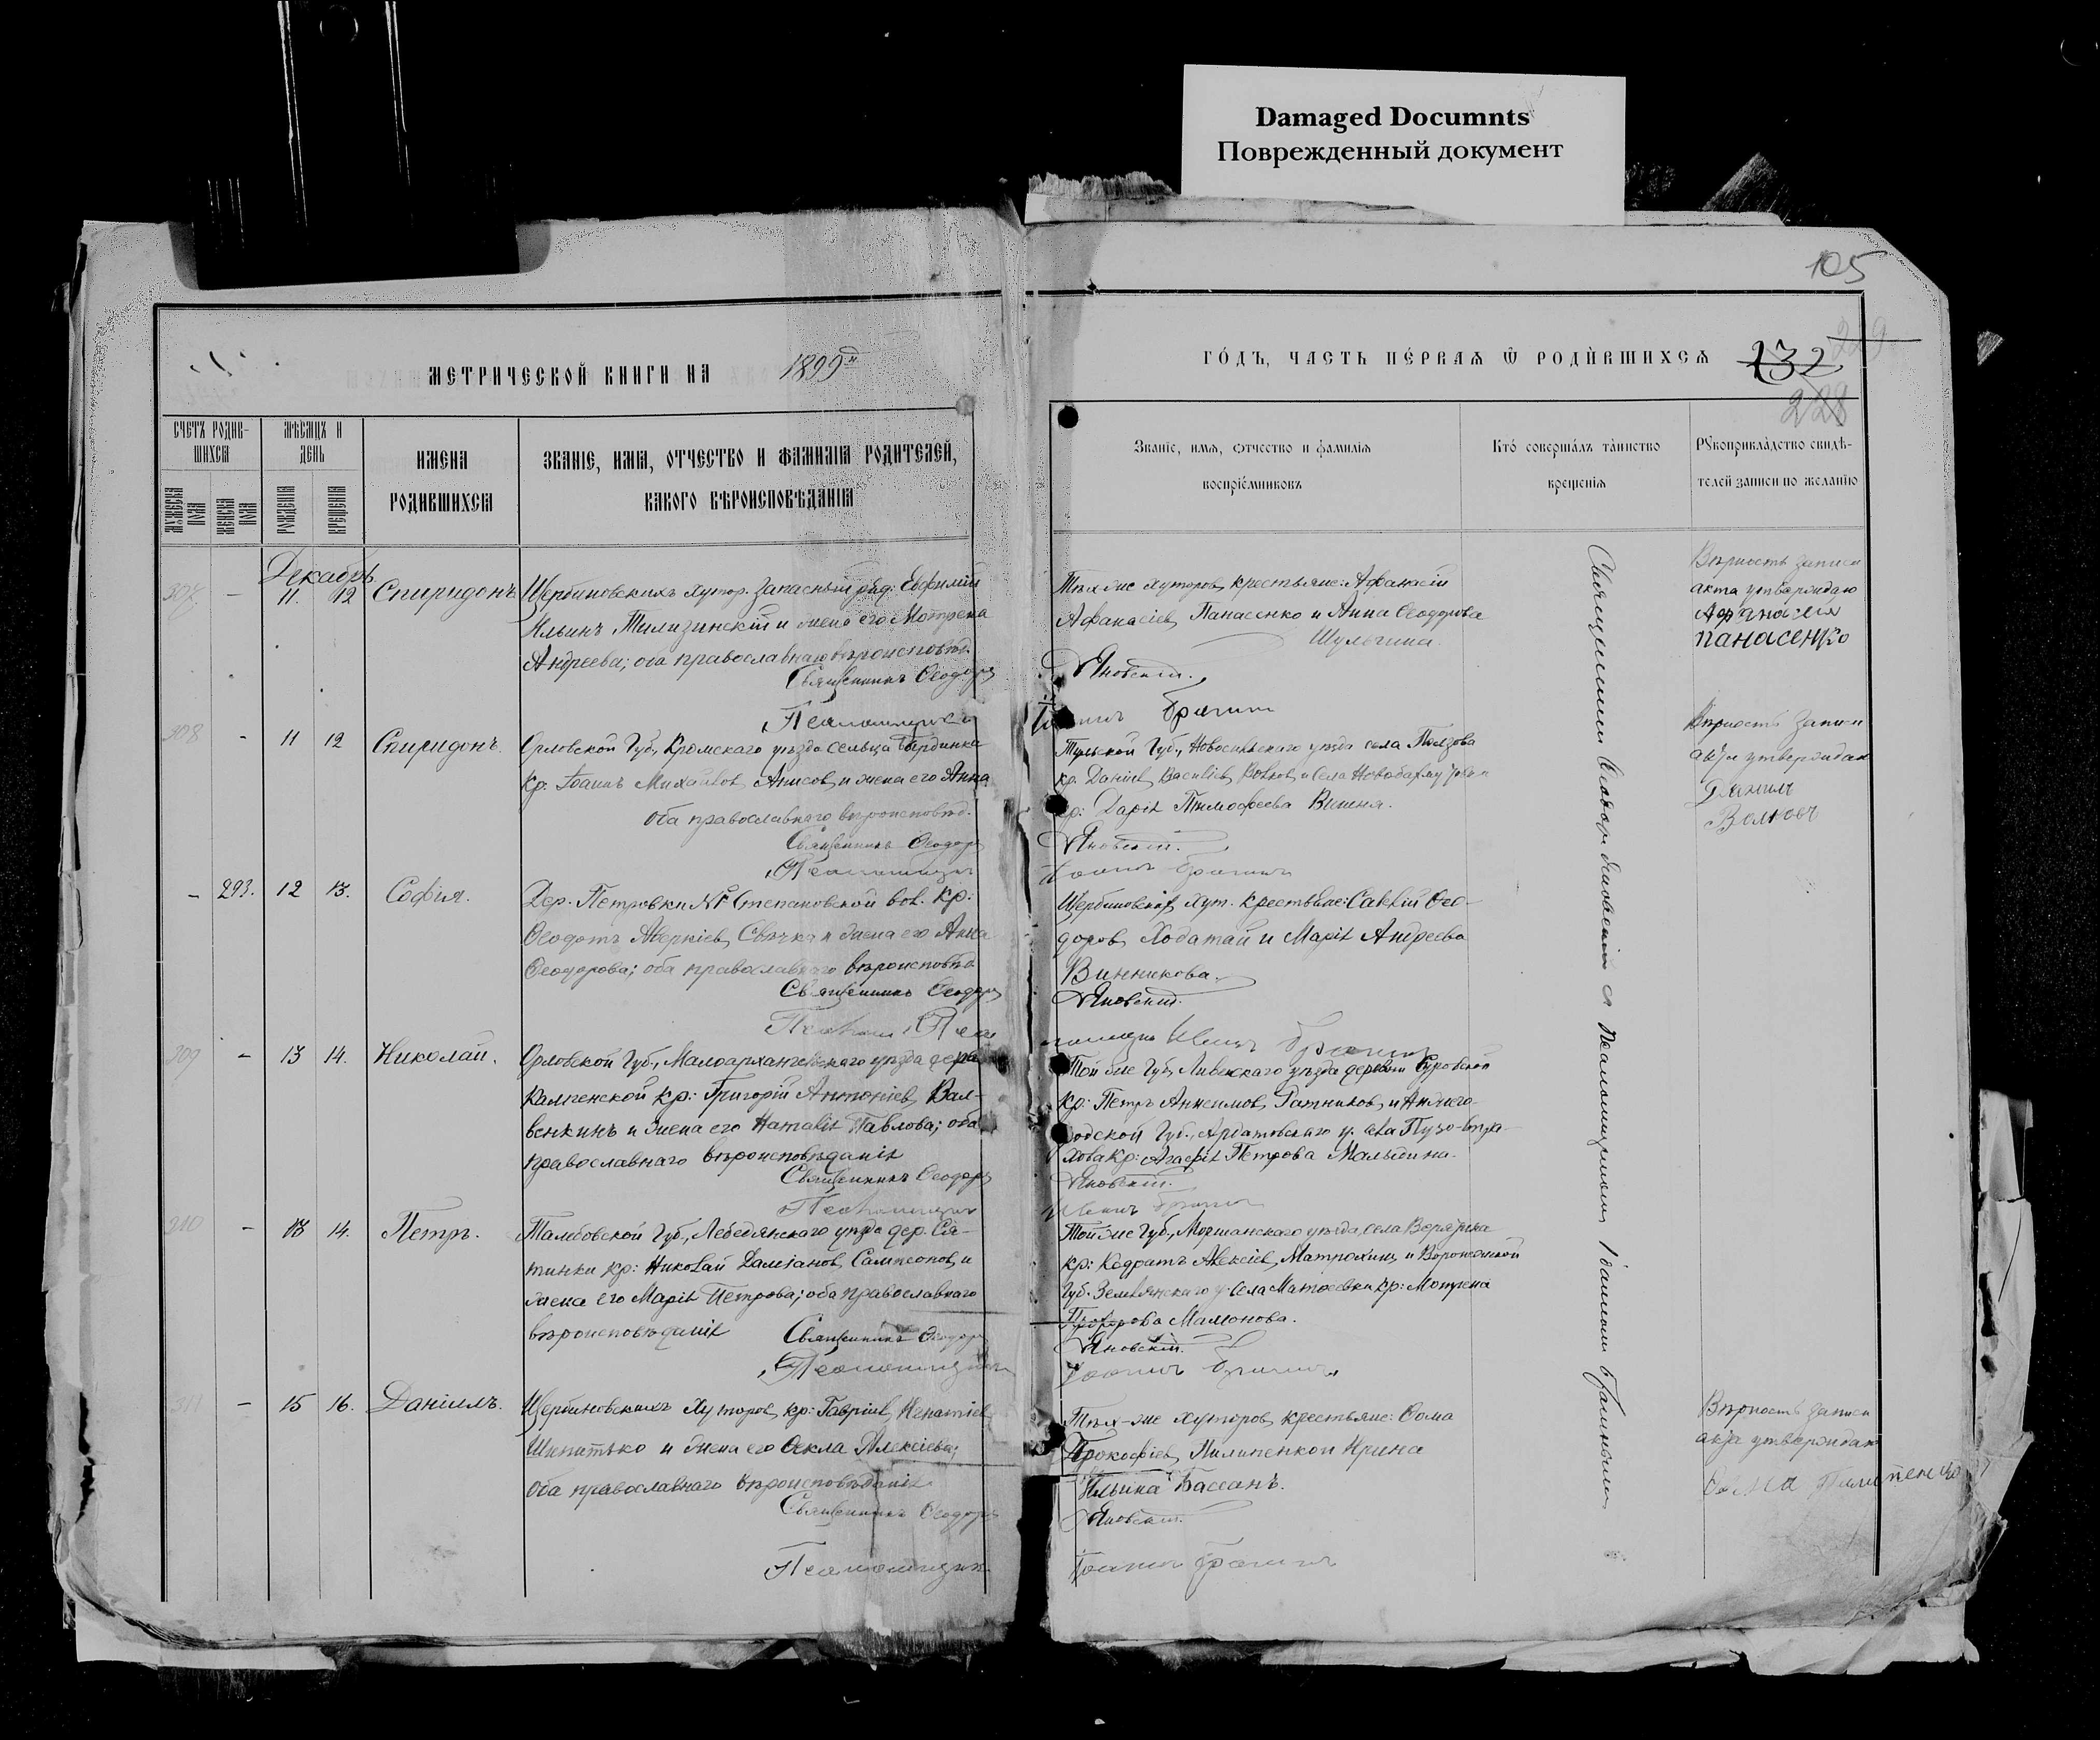 Damaged Documnts
Поврежденный документ
105
МЕТРИЧЕСКОЙ КНИГИ НА 1899й
ГОДЪ, ЧАСТЬ ПЕРВАЯ Ѿ РОДИВШИХСЯ
132
228
СЧЕТЪ РОДИВ-
ШИХСЯ
МѢСЯЦЪ И
ДЕНЬ
ИМЕНА
РОДИВШИХСЯ
ЗВАНІЕ, ИМЯ, ОТЧЕСТВО И ФАМИЛІЯ РОДИТЕЛЕЙ,
КАКОГО ВѢРОИСПОВѢДАНІЯ
МУЖЕСКА ПОЛА
ЖЕНСКА ПОЛА
РОЖДЕНІЯ
КРЕЩЕНІЯ
Званіе, имя, отчество и фамилія
воспріемниковъ
Кто совершалъ таинство
крещенія
Рукоприкладство свидѣ-
телей записи по желанію
Декабрь
307 - 11. 12 Спиридонъ
Щербиновскихъ хутор. запасный ряд: Евфимій
Ильинъ Тилизинскій и жена его Мотрена
Андреева; оба православнаго вѣроисповѣд.
Священникъ Ѳеодоръ
Псаломщикъ
Тѣхъ же хуторовъ крестьяне: Афанасій
Афанасіевъ Панасенко и Анна Ѳеодорова
Шульгина.
Яновскій.
Іоаннъ Брагинъ
Вѣрность записи
акта утверждаю
Афанасия
Панасенко
308 - 11 12 Спиридонъ.
Орловской Губ, Кромскаго уѣзда сельца
кр: Іоаннъ Михайловъ Анисовъ и жена его Анна
оба православнаго вѣроисповѣд.
Священникъ Ѳеодоръ
Псаломщикъ
Тульской Губ, Новосильскаго уѣзда села
кр. Даніилъ Васильевъ Волковъ и села
кр: Дарія Тимофеева Вишня.
Яновскій.
Іоаннъ Брагинъ
Вѣрность записи
акта утверждаю
Данилъ
Волковъ
- 293. 12 13. Софія.
Дер. Петровки № Степановской вол. кр:
Ѳеодотъ Аверкіевъ Свячка и жена его Анна
Ѳеодорова; оба православнаго вѣроисповѣд
Священникъ Ѳеодоръ
Щербиновскихъ хут. крестьяне: Савелій Ѳео-
доровъ Ходатай и Марія Андреева
Винникова.
Яновскій.
Иванъ Брагинъ
309 - 13 14. Николай.
Орловской Губ., Малоархангельскаго уѣзда
кр: Григорій Антоніевъ Вал-
венкинъ и жена его Наталія Павлова; оба
православнаго вѣроисповѣданія
Священникъ Ѳеодоръ
Псаломщикъ
Той же Губ, Ливенскаго уѣзда деревни
кр: Петръ Анисимовъ Ратниковъ и Нижего-
родской Губ., Ардатовскаго у. села
кр: Агафія Петрова Малыгина.
Яновскій.
Иванъ Брагинъ
310 - 13 14. Петръ.
Тамбовской Губ., Лебедянскаго уѣзда дер. Сѣ-
тинки кр: Николай Даміановъ Сампсоновъ и
жена его Марія Петрова; оба православнаго
вѣроисповѣданія Священникъ Ѳеодоръ
Псаломщикъ
Той же Губ., Моршанскаго уѣзда, села
кр: Кодратъ Алексіевъ Матрохинъ и Воронежской
Губ. Землянскаго у. села Матвеевки кр: Мотрена
Прохорова Мамонова.
Яновскій.
Іоаннъ Брагинъ
311 - 15 16. Даніилъ.
Щербиновскихъ хуторовъ кр: Гавріилъ Игнатіевъ
Шипитько и жена его Ѳекла Алексіева;
оба православнаго вѣроисповѣданія
Священникъ Ѳеодоръ
Псаломщикъ
Тѣхъ-же хуторовъ крестьяне: Ѳома
Прокофіевъ Пилипенко и Ирина
Ильина Бассанъ.
Яновскій.
Іоаннъ Брагинъ
Вѣрность записи
акта утверждаю
Фома Пилипенко
Священникъ Ѳеодоръ Яновскій съ Псаломщикомъ Іоанномъ Брагинымъ